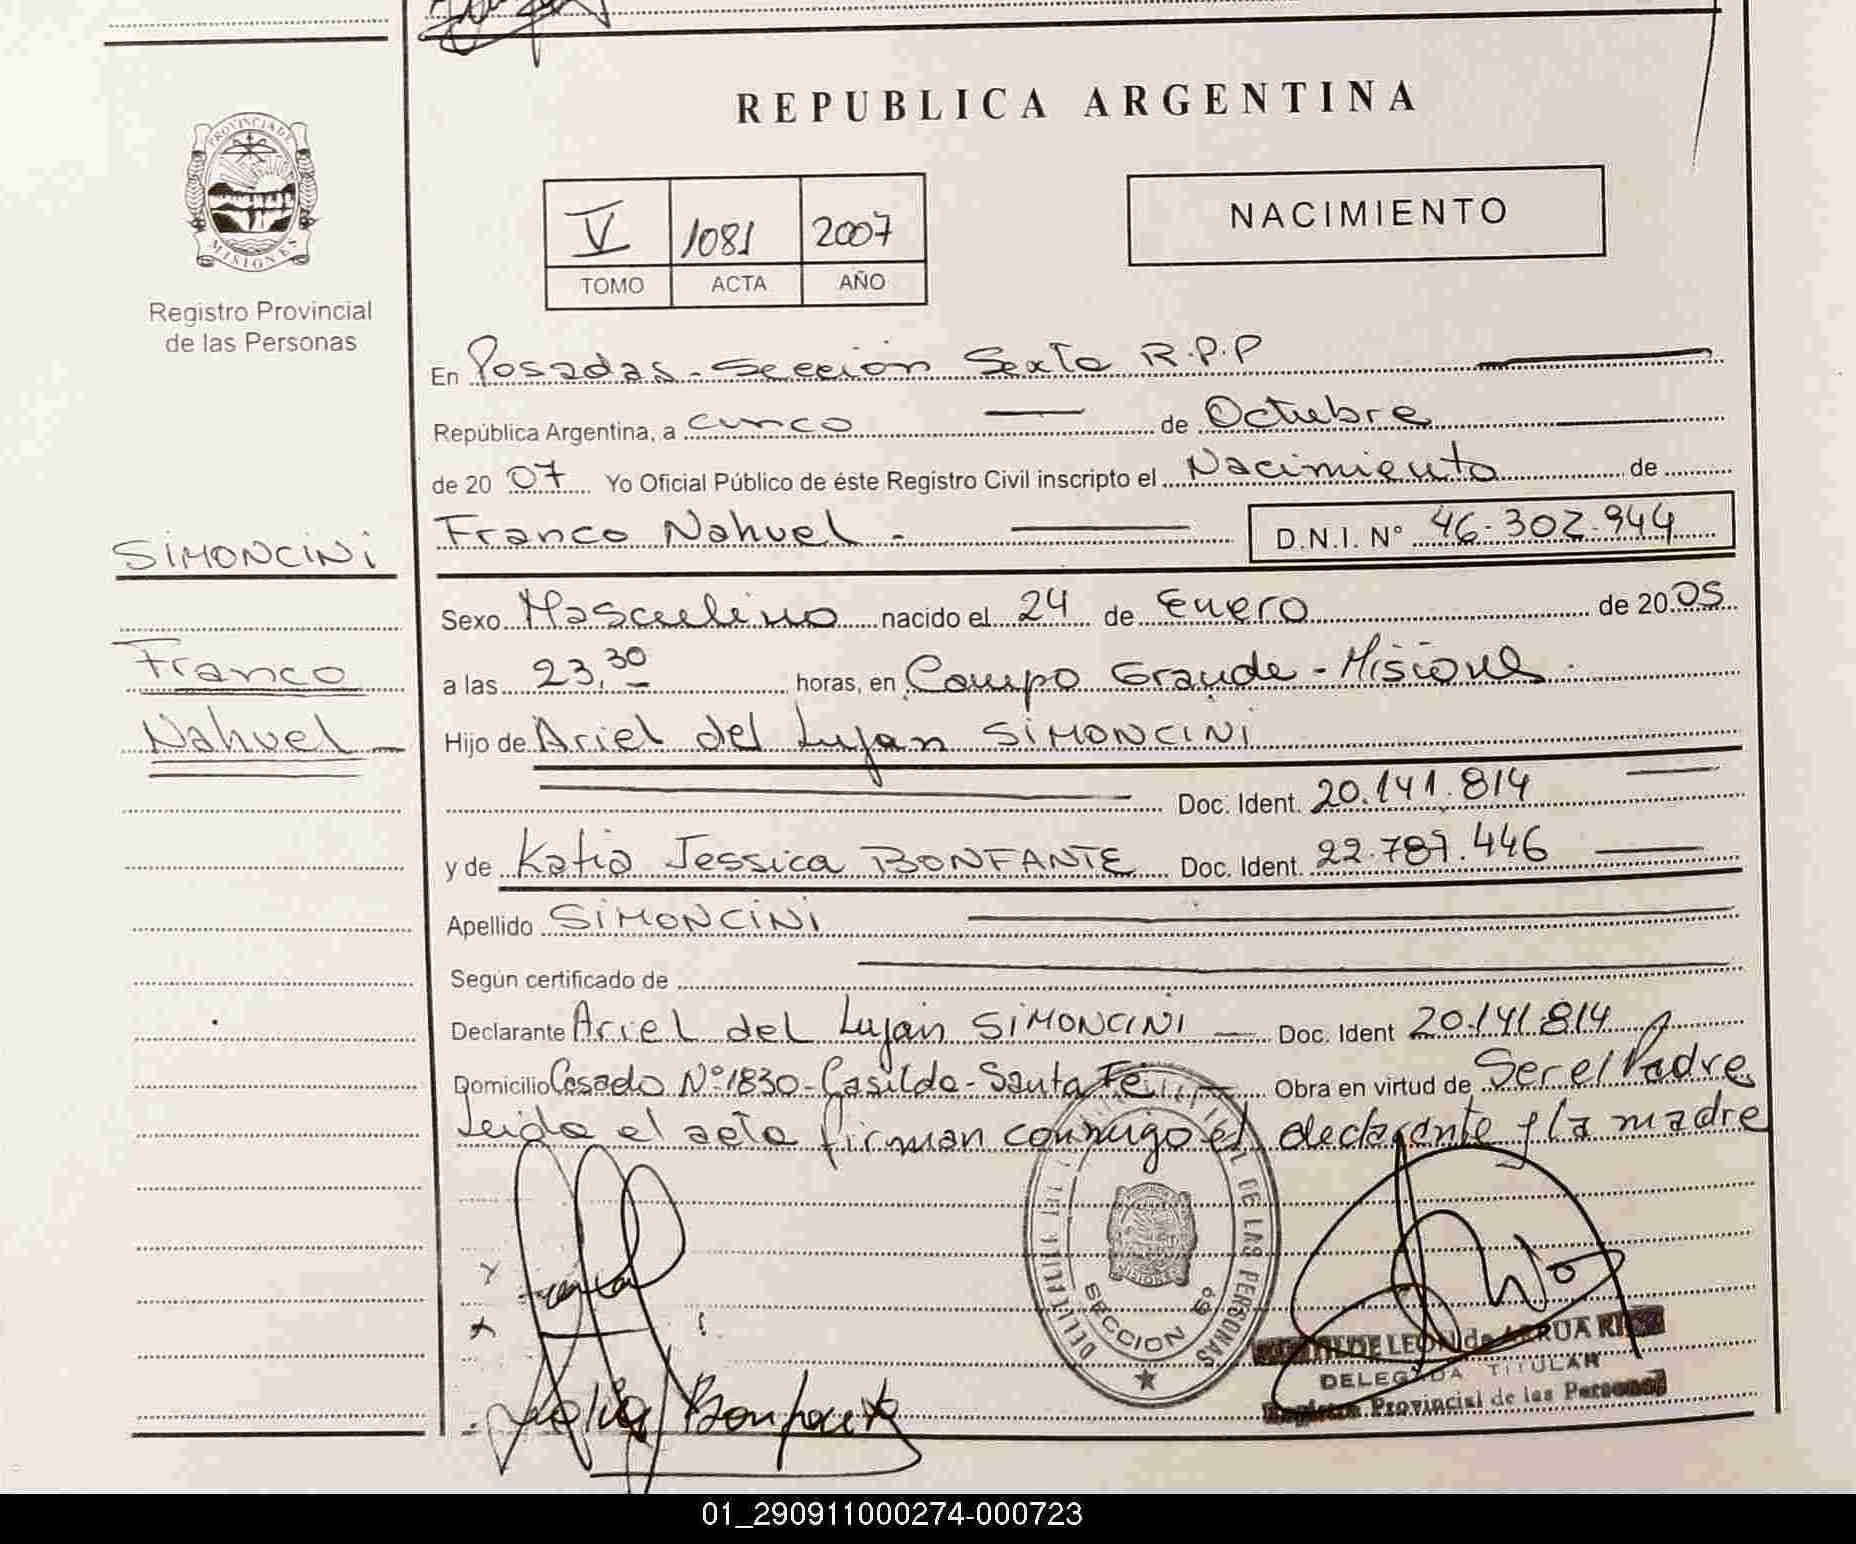 REPUBLICA ARGENTINA
PROVINCIA DE
MISIONES
Registro Provincial
de las Personas
V 1081 2007
TOMO ACTA AÑO
NACIMIENTO
En Posadas - Sección Sexta R.P.P
República Argentina, a cinco de Octubre
de 2007 Yo Oficial Público de éste Registro Civil inscripto el Nacimiento de
Franco Nahuel - D.N.I. N° 46.302.944
SIMONCINI
Franco
Nahuel
Sexo Masculino nacido el 24 de Enero de 2005
a las 23,30 horas, en Campo Grande - Misiones
Hijo de Ariel del Lujan SIMONCINI
Doc. Ident. 20.141.814
y de Katia Jessica BONFANTE Doc. Ident. 22.787.446
Apellido SIMONCINI
Según certificado de
Declarante Ariel del Luján SIMONCINI Doc. Ident 20.141.814
Domicilio Casado N° 1830 - Casilda - Santa Fé Obra en virtud de Ser el Padre
Leida el acta firman conmigo el declarante y la madre
DE LAS PERSONAS
SECCION 6º
MISIONES
LEON de ARRUA
DELEGADA TITULAR
Registro Provincial de las Personas
01_290911000274-000723